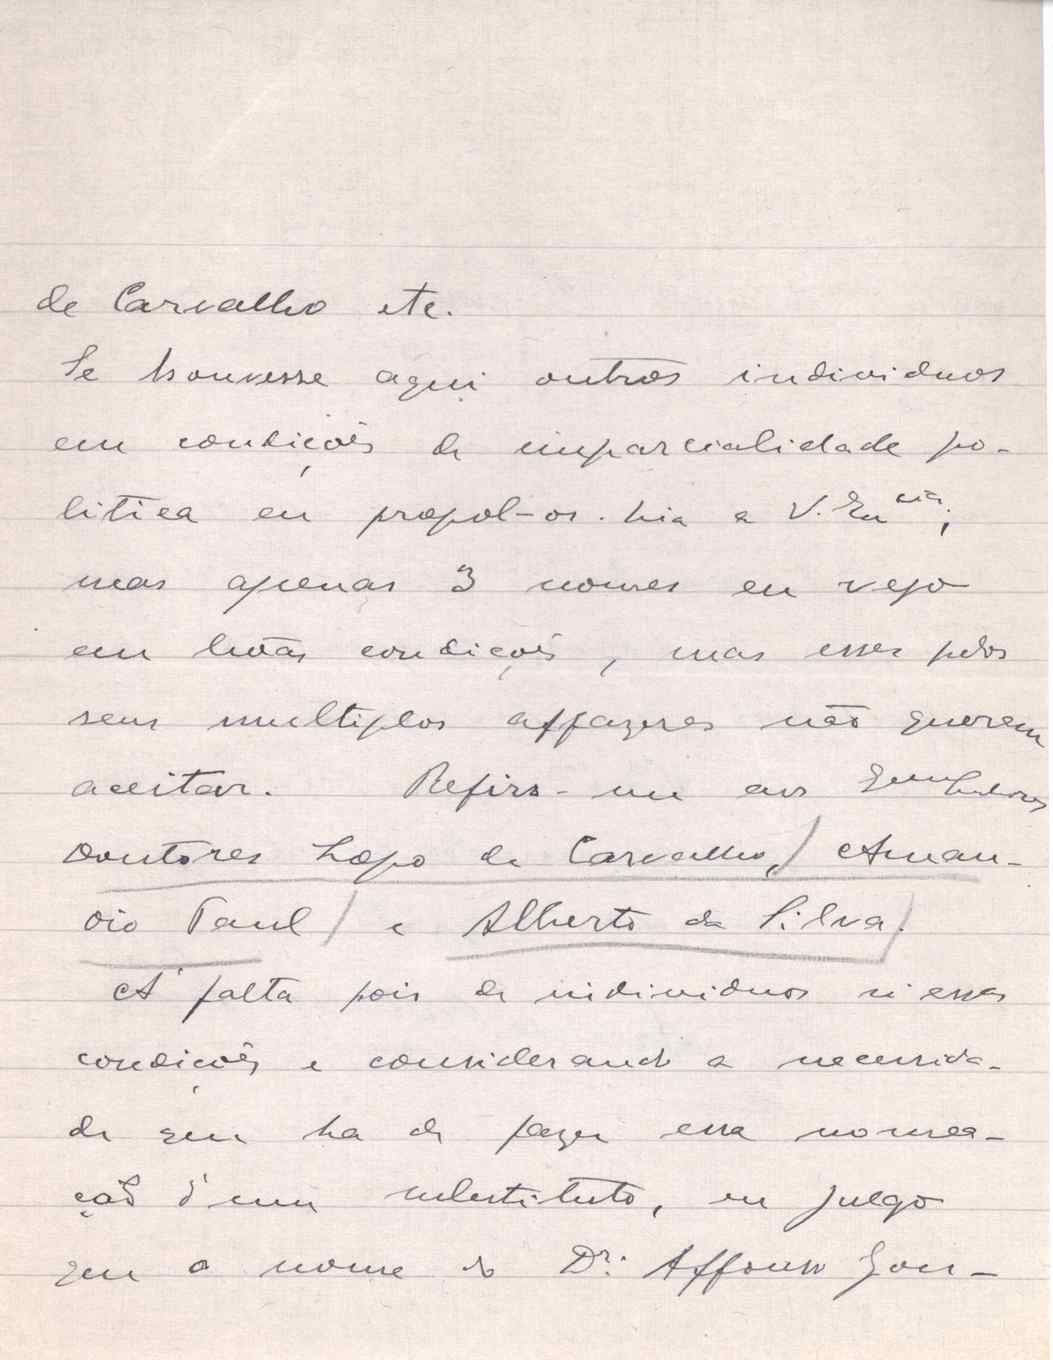 de Carvalho etc.
Se houvesse aqui outros individuos
em condições de imparcialidade po-
litica eu propol-os-hia a V. Ex.cia;
mas apenas 3 nomes eu vejo
em bôas condicções, mas esses pelos
seus multiplos affazeres não querem
aceitar. Refiro-me aos
Doutores Lopo de Carvalho, Aman-
cio Paul e Alberto da Silva.
A' falta pois de individuos n'essas
condições e considerando a necessida-
de que ha de fazer essa nomea-
ção d'um substituto, eu julgo
que o nome do Dr. Affonso Gon-